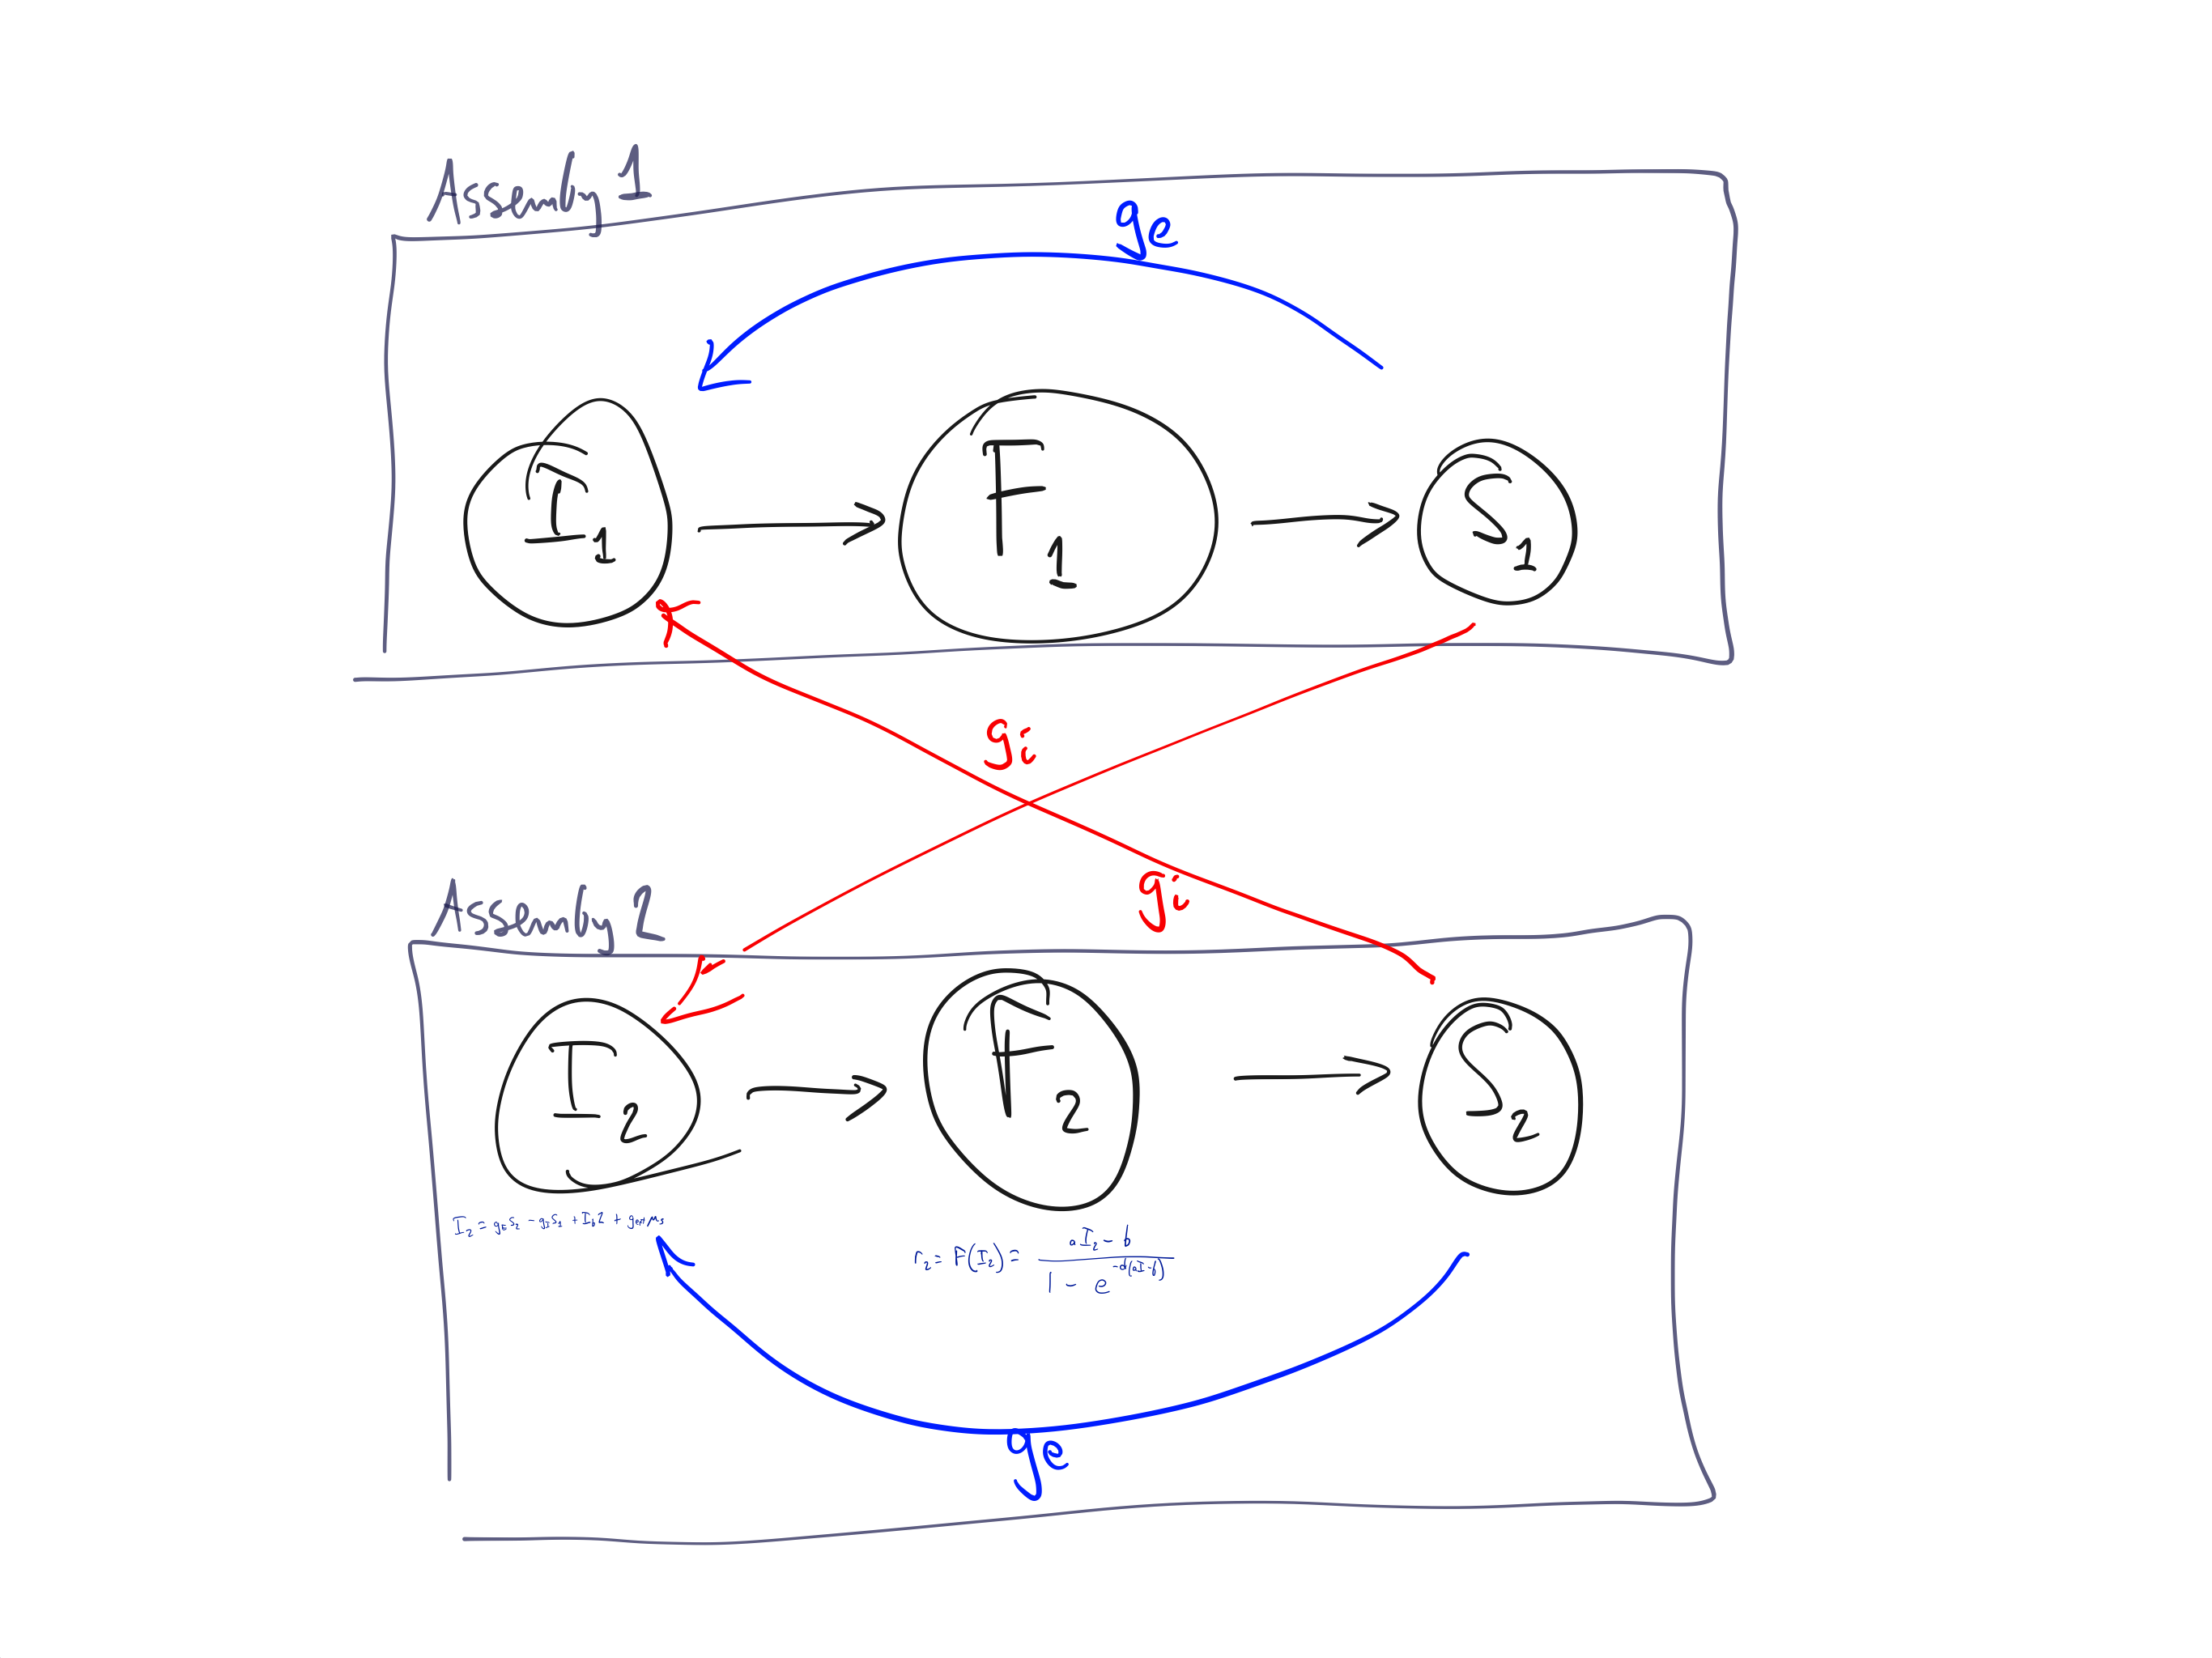 Assembly 1
ge
I1
F1
S1
gi
gi
Assembly 2
I2
F2
S2
I2 = gE S2 - gI S1 + Ib2 + gext
r2 = F(I2) = (aI2 - b) / (1 - e^(-d(aI-b)))
ge